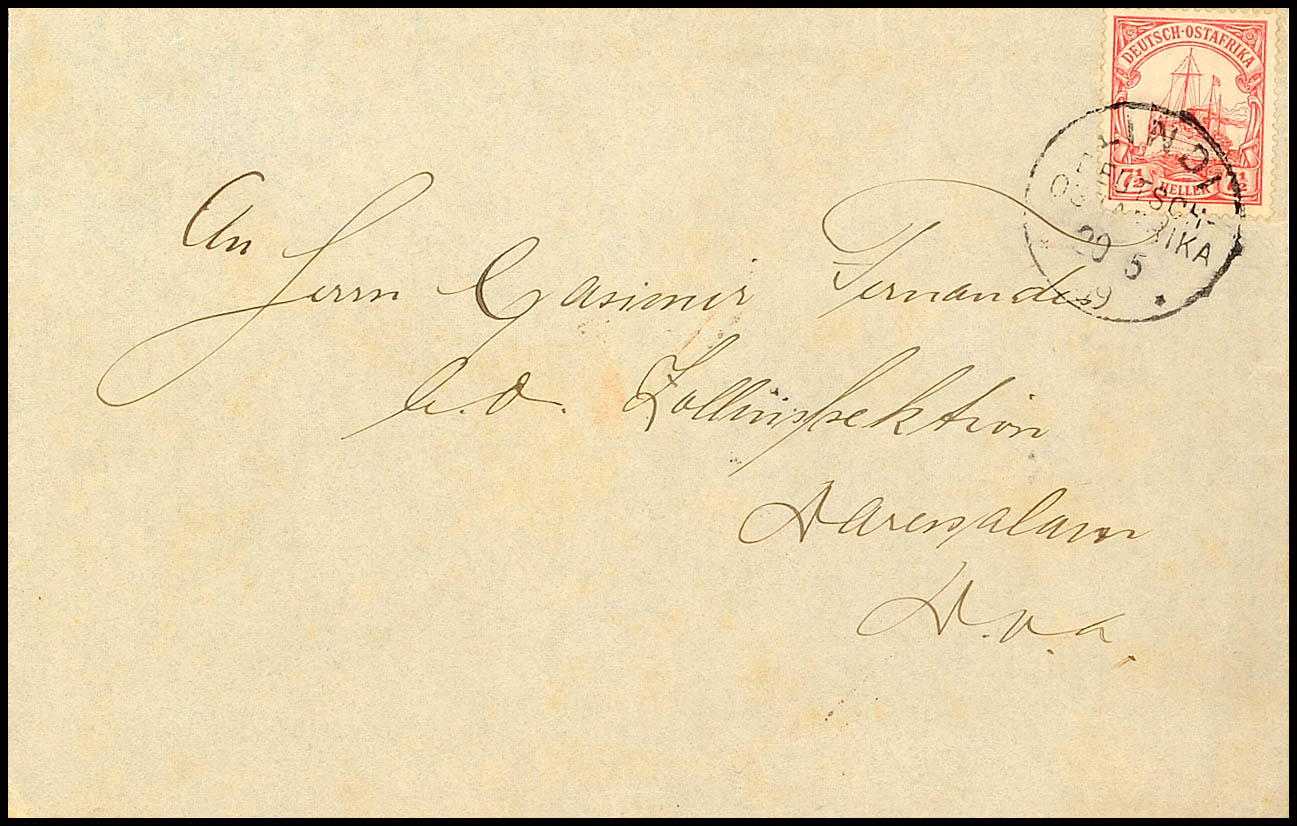 DEUTSCH-OSTAFRIKA
7½ HELLER 7½
LINDI
DEUTSCH-
OSTAFRIKA
20 5
09
An
Herrn Casimir Fernandes
b.d. Zollinspektion
Daressalam
D.o.a.